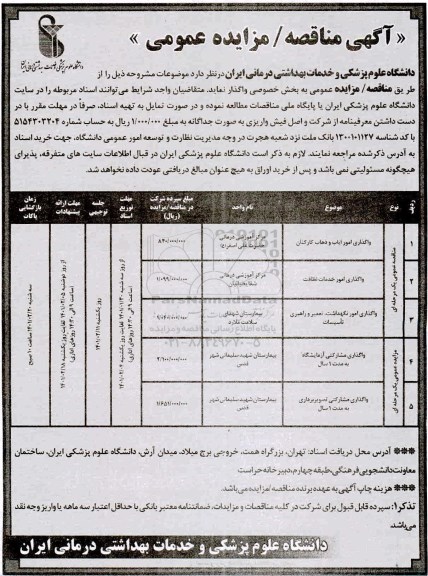 « آگهی مناقصه/ مزایده عمومی »
دانشگاه علوم پزشکی و خدمات بهداشتی درمانی ایران درنظر دارد موضوعات مشروحه ذیل را از
طریق مناقصه / مزایده عمومی به بخش خصوصی واگذار نماید. متقاضیان واجد شرایط می‌توانند اسناد مربوطه را در سایت
دانشگاه علوم پزشکی ایران یا پایگاه ملی مناقصات مطالعه نموده و در صورت تمایل به تهیه اسناد، صرفاً در مهلت مقرر با در
دست داشتن معرفینامه از شرکت و اصل فیش واریزی به صورت جداگانه به مبلغ ۱/۰۰۰/۰۰۰ ریال به حساب شماره ۵۱۵۴۳۰۳۲۰۴
با کد شناسه ۱۳۰۰۱۰۱۱۲۷ بانک ملت نزد شعبه هجرت در وجه مدیریت نظارت و توسعه امور عمومی دانشگاه، جهت خرید اسناد
به آدرس ذکرشده مراجعه نمایند. لازم به ذکر است دانشگاه علوم پزشکی ایران در قبال اطلاعات سایت های متفرقه، پذیرای
هیچگونه مسئولیتی نمی باشد و پس از خرید اوراق به هیچ عنوان مبالغ دریافتی عودت داده نخواهد شد.
ردیف نوع موضوع نام واحد مبلغ سپرده شرکت در مناقصه/مزایده (ریال) مهلت توزیع اسناد جلسه توجیهی مهلت ارائه پیشنهادات زمان بازگشایی پاکات
مناقصه عمومی یک مرحله ای
۱ واگذاری امور ایاب و ذهاب کارکنان مرکز آموزشی درمانی
۲ واگذاری امور خدمات نظافت مرکز آموزشی درمانی شفا یحیائیان
۳ واگذاری امور نگهداشت، تعمیر و راهبری تأسیسات بیمارستان شهدای سلامت ملارد
مزایده عمومی یک مرحله ای
۴ واگذاری مشارکتی آزمایشگاه به مدت ۱ سال بیمارستان شهید سلیمانی شهر قدس ۲/۱۰۰/۰۰۰/۰۰۰
۵ واگذاری مشارکتی تصویربرداری به مدت ۱ سال بیمارستان شهید سلیمانی شهر قدس ۱/۶۵۱/۰۰۰/۰۰۰
ParsNamadData
۰۲۱-۸۸۳۴۹۶۷۰-۵
*** آدرس محل دریافت اسناد: تهران، بزرگراه همت، خروجی برج میلاد، میدان آرش، دانشگاه علوم پزشکی ایران، ساختمان
معاونت دانشجویی فرهنگی، طبقه چهارم، دبیرخانه حراست
*** هزینه چاپ آگهی به عهده برنده مناقصه/مزایده می‌باشد.
تذکر۱: سپرده قابل قبول برای شرکت در کلیه مناقصات و مزایدات، ضمانتنامه معتبر بانکی با حداقل اعتبار سه ماهه یا واریز وجه نقد
می‌باشد.
دانشگاه علوم پزشکی و خدمات بهداشتی درمانی ایران